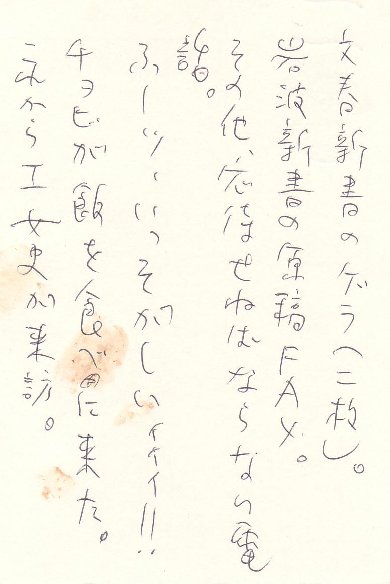 文春新書のゲラへ二枚し。
岩波新書の原稿FAX。
その他、応待せねばならない電
話。
ふーッ、いっそがしいィィィ!!
チョビが飯を食べに来た。
これから工女史が来訪。